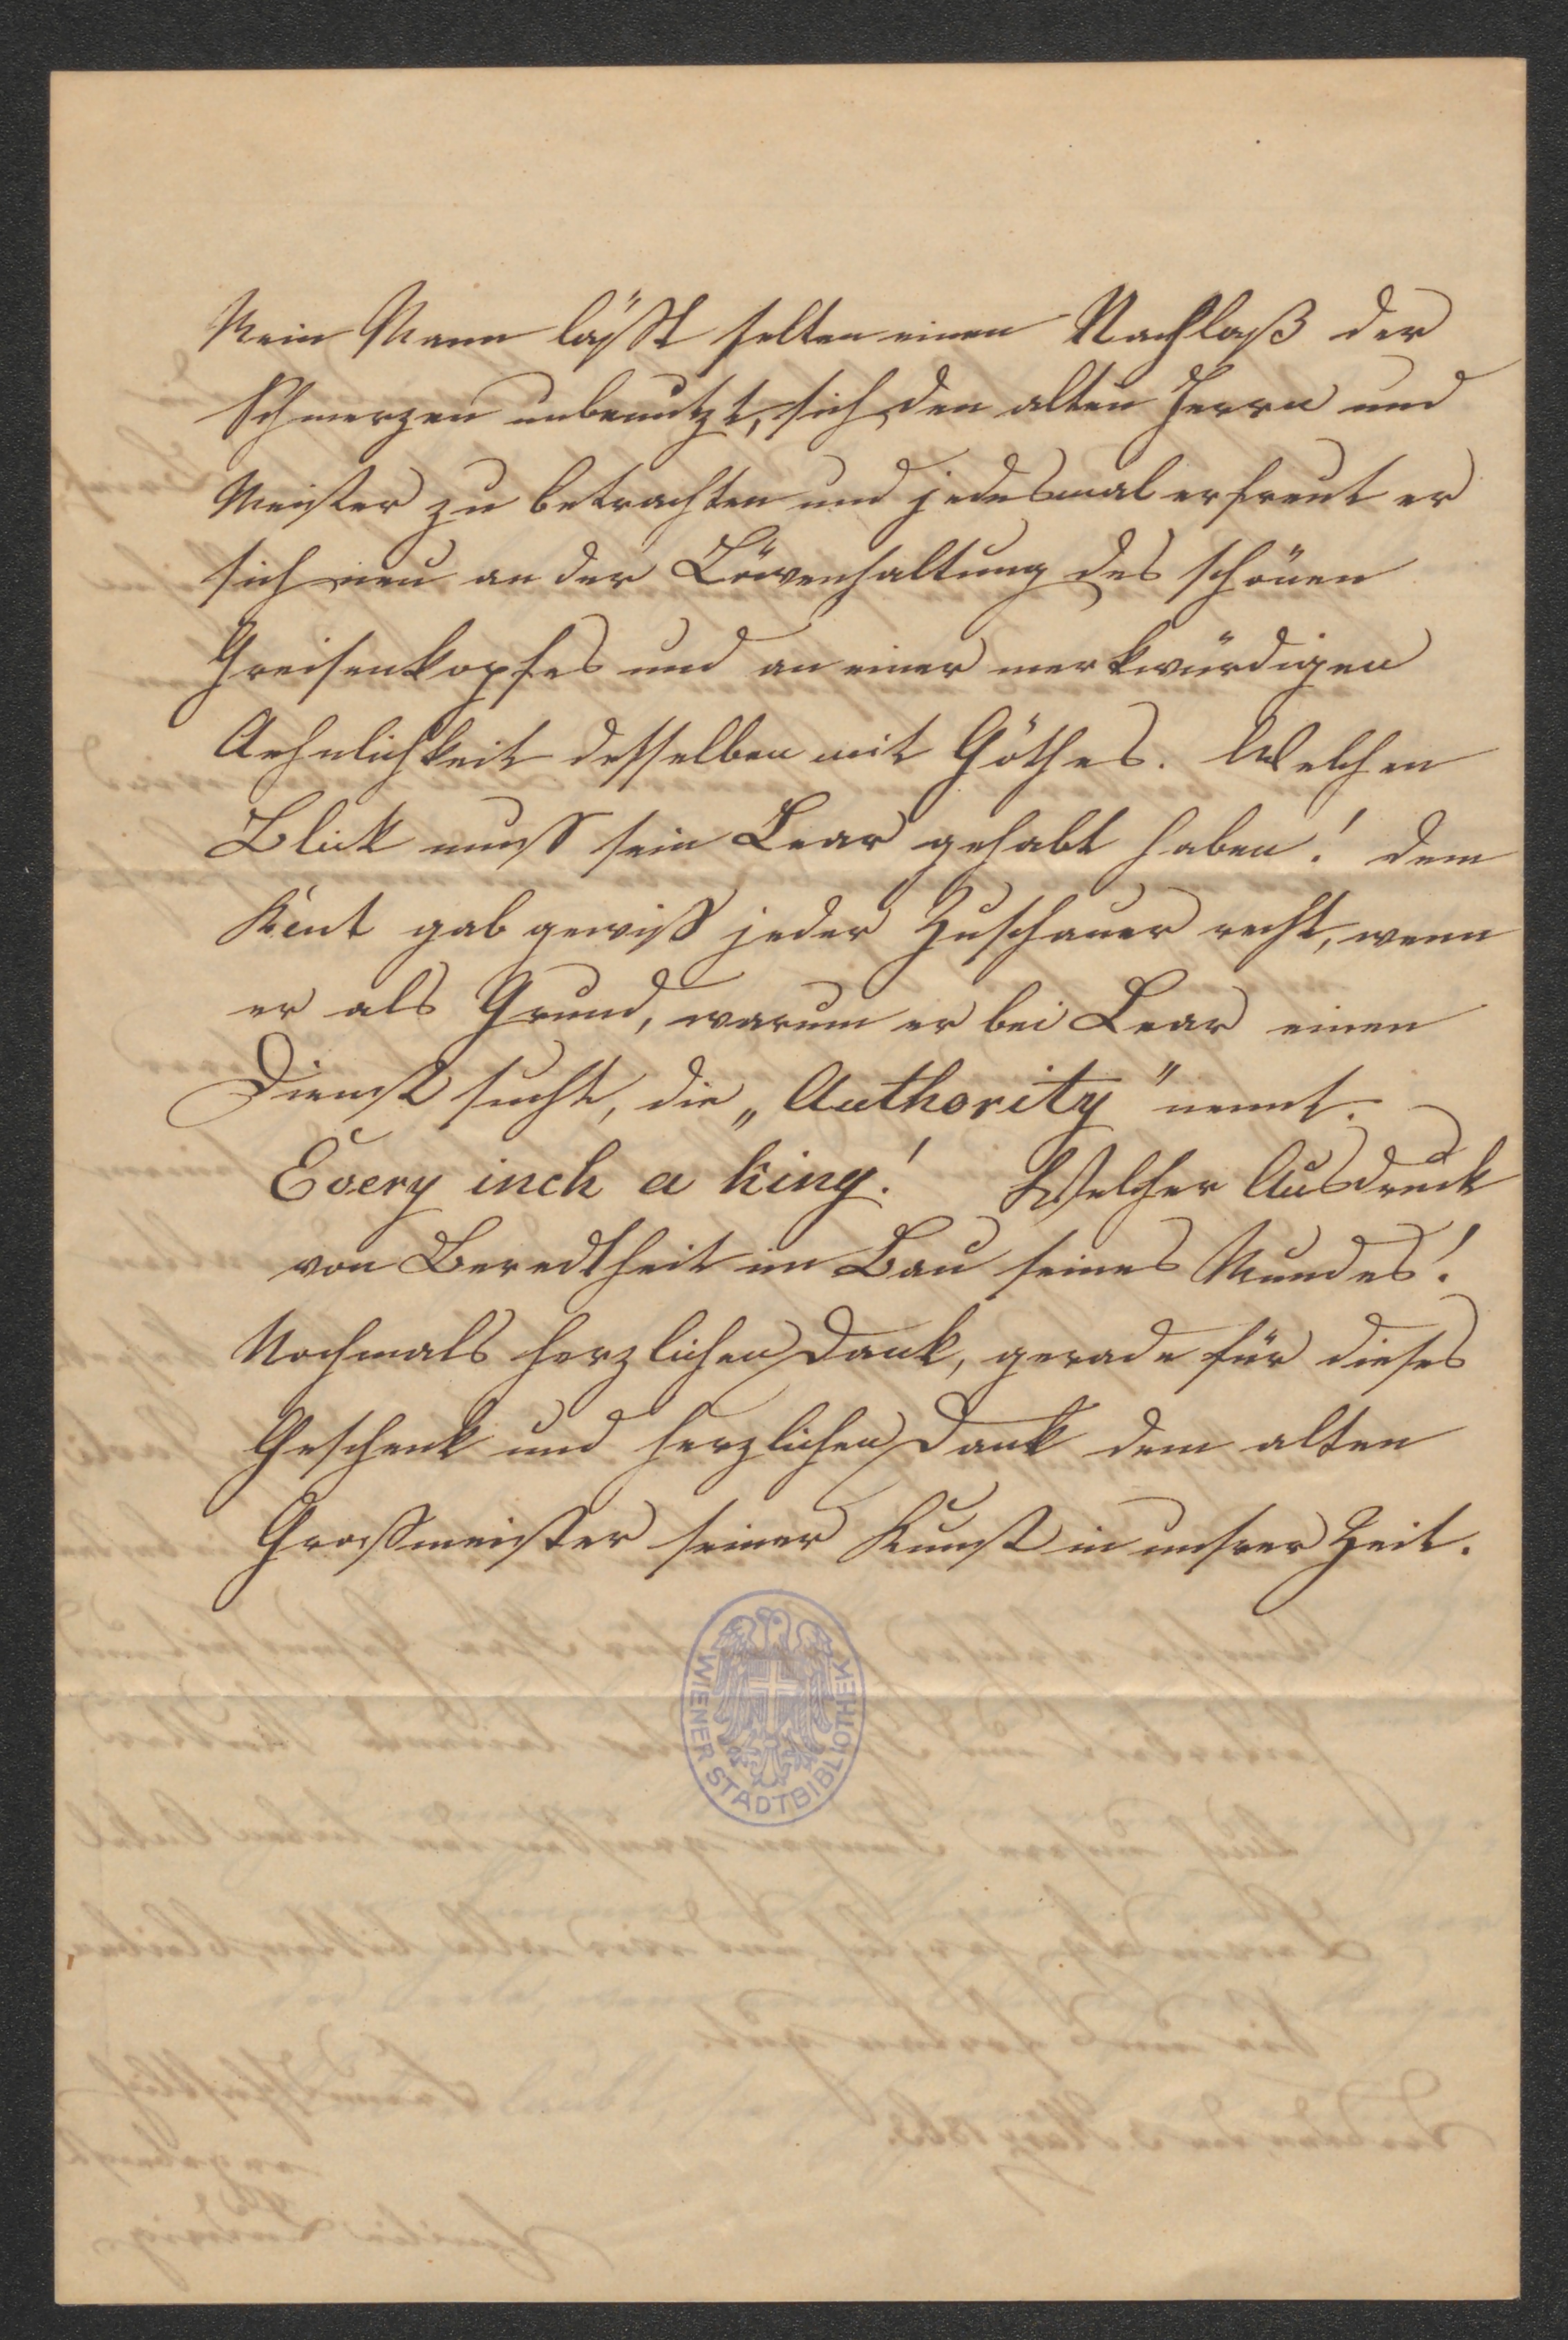 Mein Mann läßt selten einen Nachlaß der
Schmerzen unbenutzt, sich den alten Herrn und
Meister zu betrachten und jedesmal erfreut er
sich neu an der Löwenhaltung des schönen
Greisenkopfes und an einer merkwürdigen
Aehnlichkeit desselben mit Göthes. Welchen
Blick muß sein Lear gehabt haben! dem
Kent gab gewiß jeder Zuschauer recht, wenn
er als Grund, warum er bei Lear einen
Dienst sucht, die „Authority" nennt.
Every inch a king! Welcher Ausdruck
von Beredtheit im Bau seines Mundes!
Nochmals herzlichen Dank, gerade für dieses
Geschenk und herzlichen Dank dem alten
Großmeister seiner Kunst in unsrer Zeit.
WIENER STADTBIBLIOTHEK